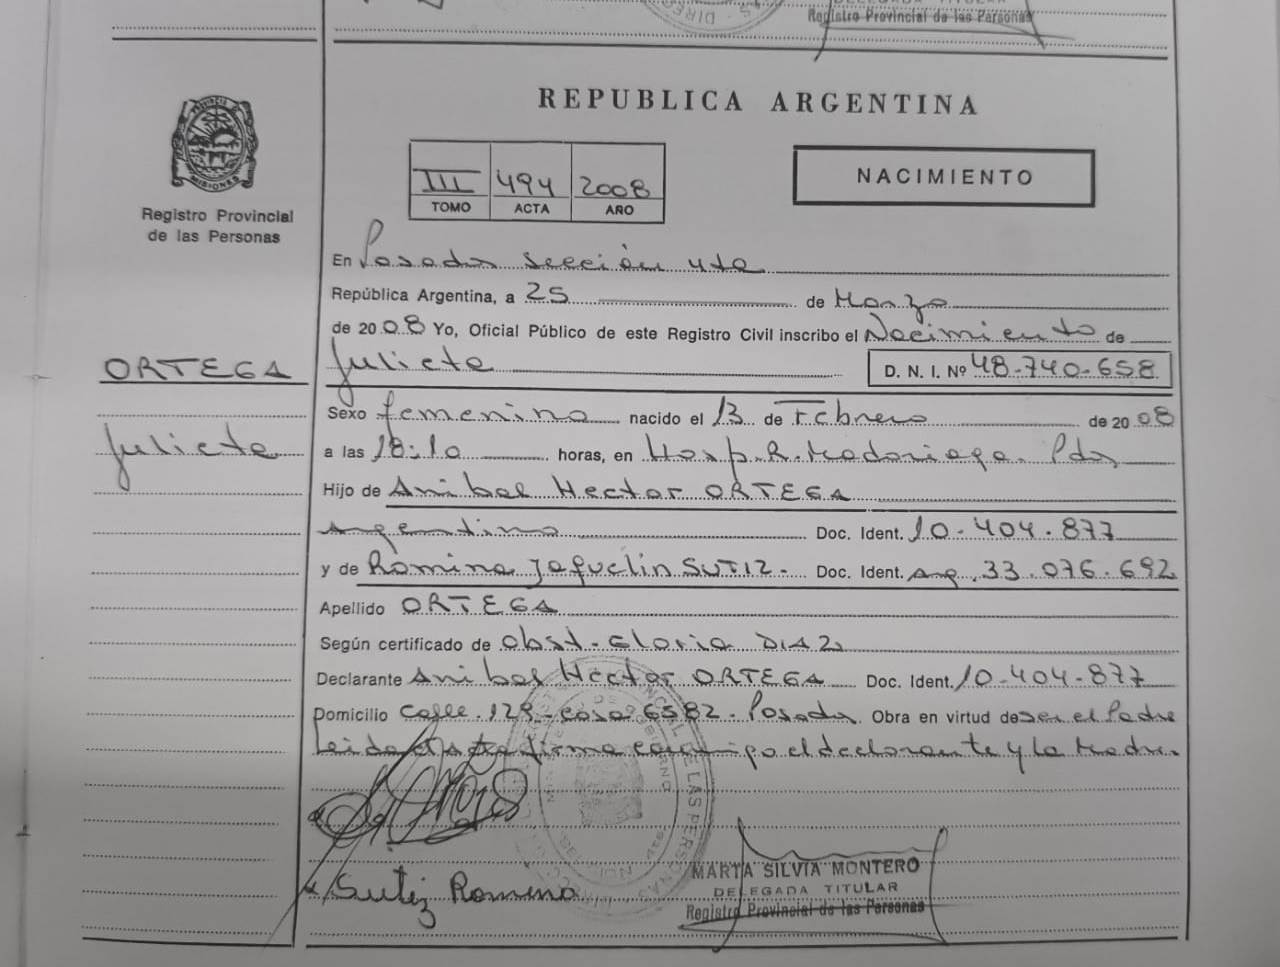 Registro Provincial de las Personas
REPUBLICA ARGENTINA
PROVINCIA DE
MISIONES
Registro Provincial
de las Personas
III 494 2008
TOMO ACTA AÑO
NACIMIENTO
En Posadas sección 4ta
República Argentina, a 25 de Marzo
de 2008 Yo, Oficial Público de este Registro Civil inscribo el Nacimiento de
Julieta D. N. I. Nº 48-740-658
ORTEGA
Julieta
Sexo femenino nacido el 13 de Febrero de 2008
a las 18:10 horas, en Hosp. R. Madariaga. Pdas
Hijo de Anibal Hector ORTEGA
Argentino Doc. Ident. 10-404-877
y de Romina Jaquelin SUTIZ - Doc. Ident. Arg. 33.076.692
Apellido ORTEGA
Según certificado de Obst. Gloria DIAZ
Declarante Anibal Hector ORTEGA Doc. Ident. 10-404-877
Domicilio Calle 129 - casa 6582 - Posadas. Obra en virtud de ser el Padre
Leida el Acta firma conmigo el declarante y la Madre
Sutiz Romina
MARTA SILVIA MONTERO
DELEGADA TITULAR
Registro Provincial de las Personas